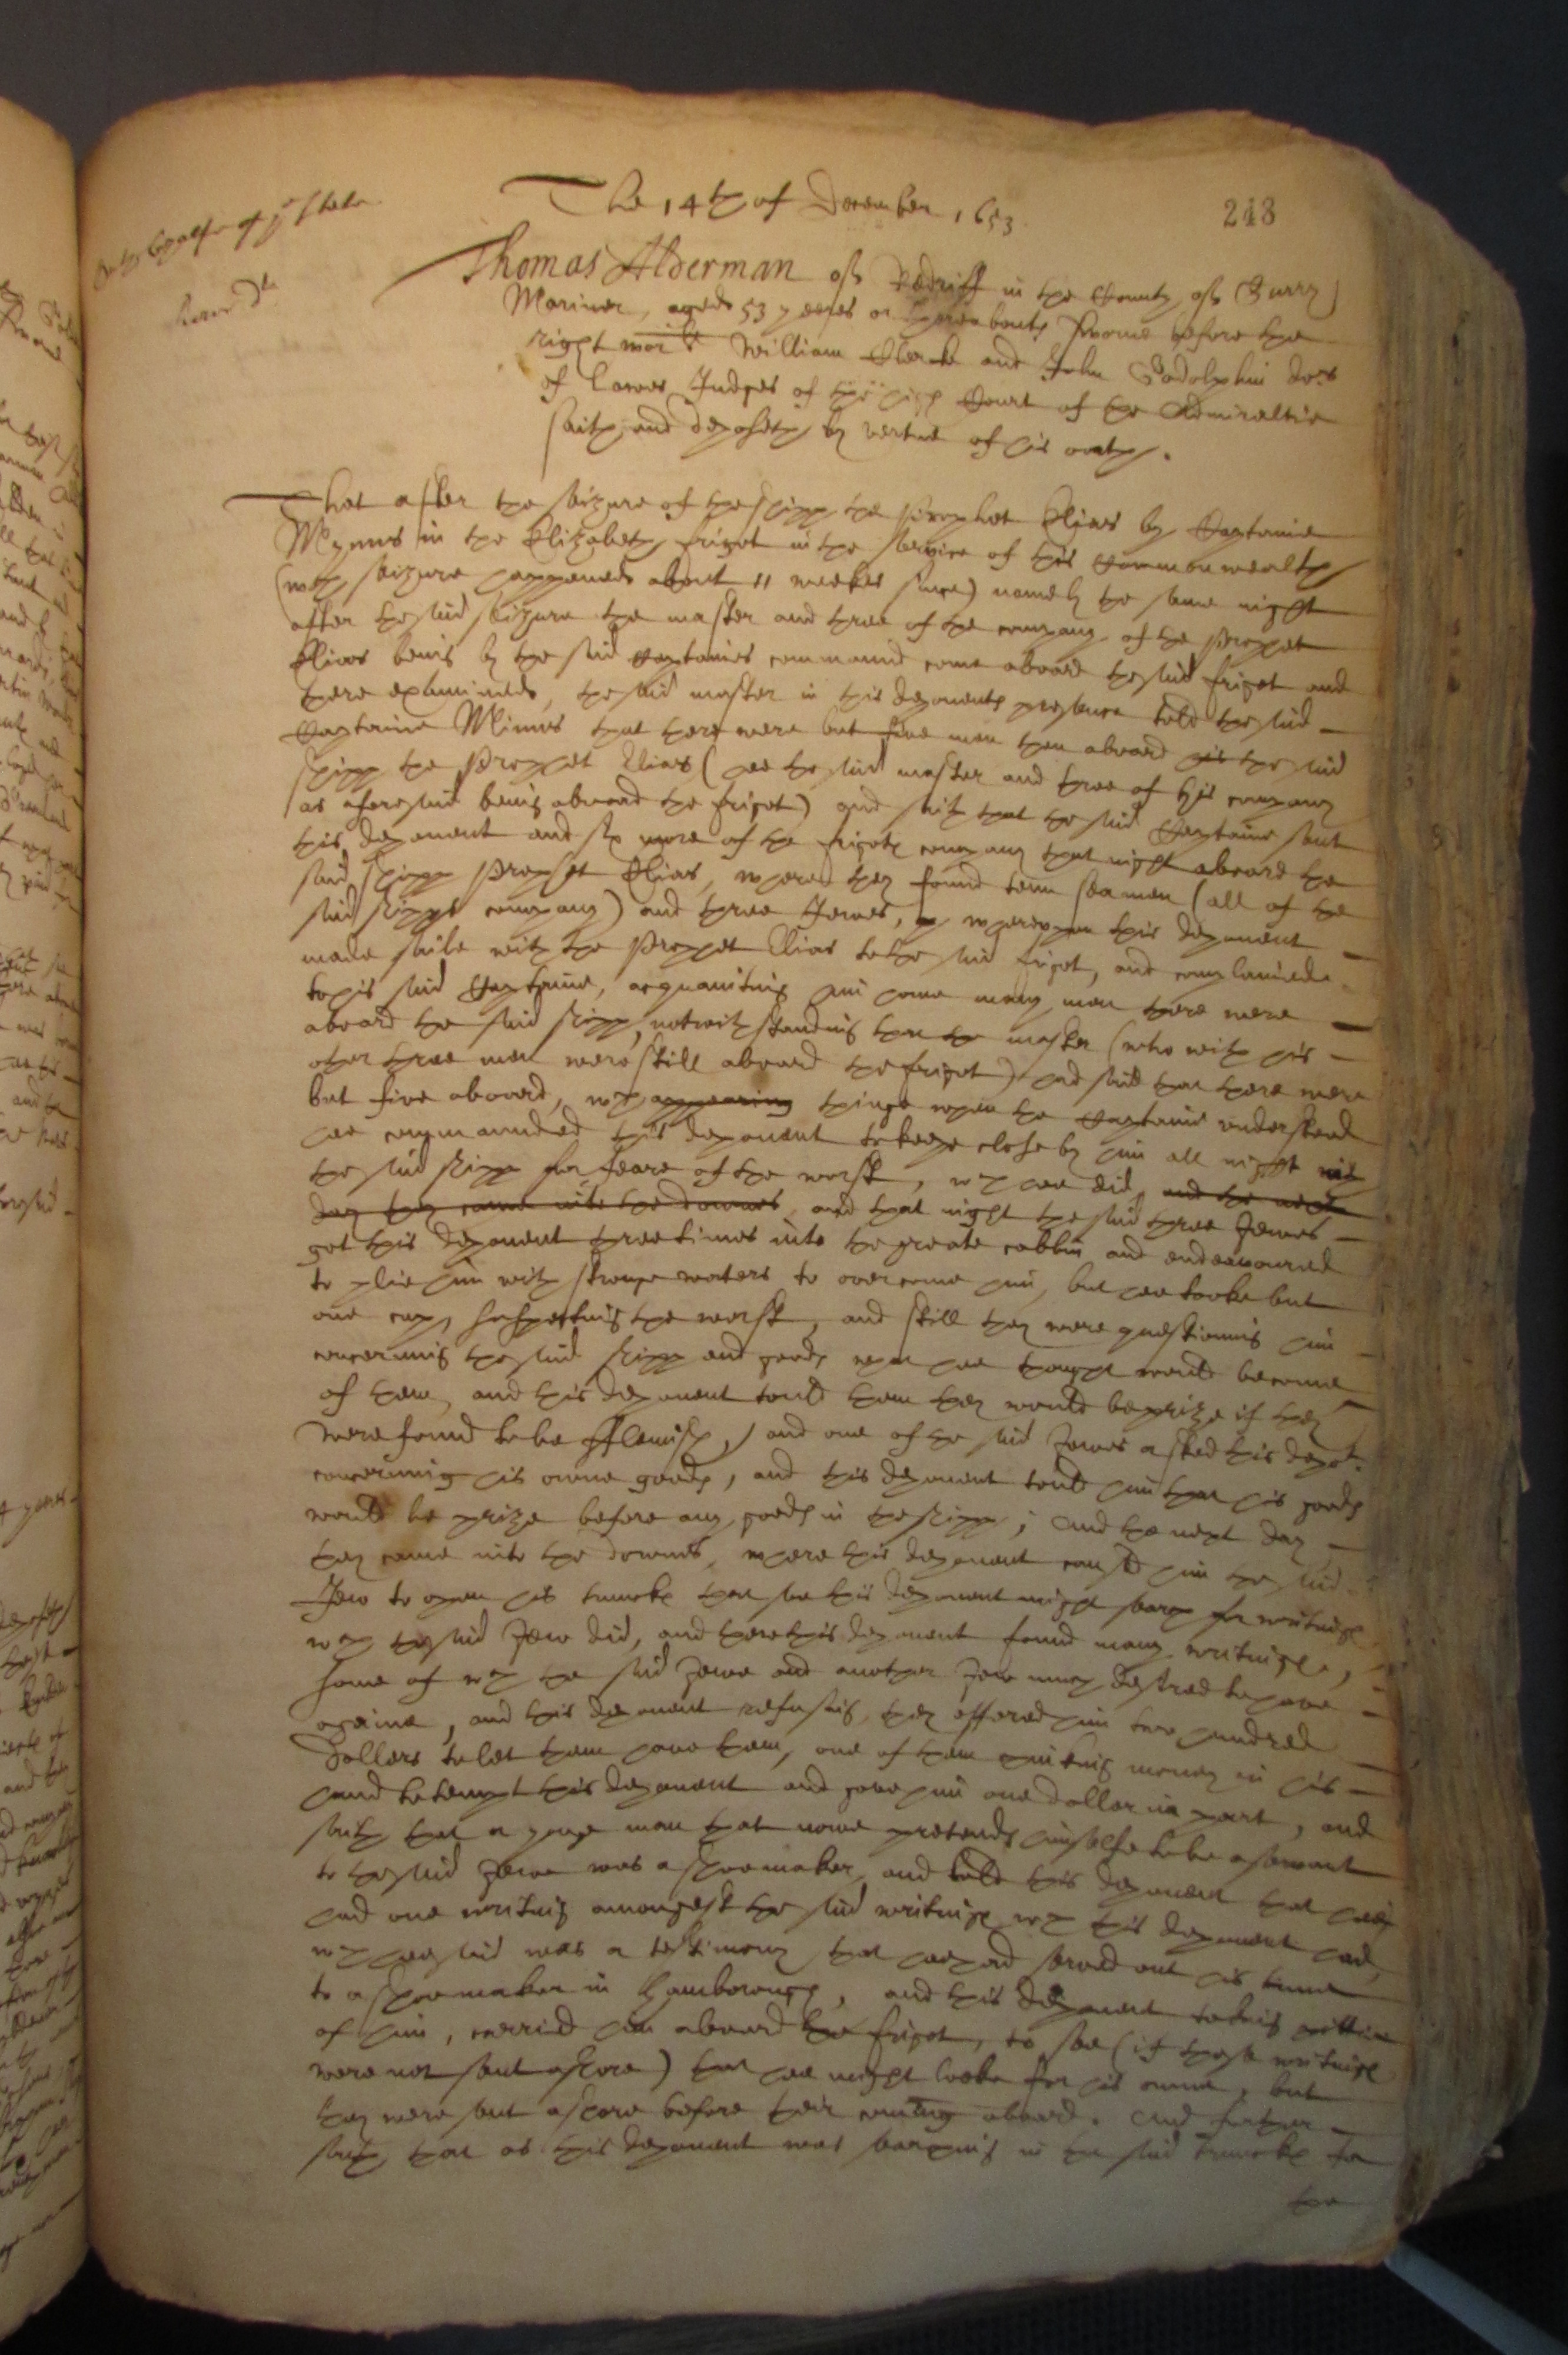 The 14th of December 1653
248
On the behalfe of ye State
Thomas Alderman of Redriff in the County of Surry
Mariner, aged 53 yeeres or thereabouts sworne before the
right worll William Clerke and John Godolphin docrs
of Lawes Judges of the high Court of the Admiraltie
saith and deposeth by vertue of his oath.
That after the seizure of the shipp the Prophet Elias by Captaine
Mynns in the Elizabeth frigot in the service of this Commonwealth
(wch seizure happened about 11 weekes since) namely the same night
after the said seizure the master and three of the company of the Prophet
Elias being by the said Captaines command come aboard the said frigot and
there examined, the said master in this deponents presence told the said
Captaine Minns that there were but five men then aboard his the said
shipp the Prophet Elias (hee the said master and three of his company
as aforesaid being aboard the frigot) and saith that the said Captaine sent
this deponent and six more of the frigots company that night aboard the
said shipp Prophet Elias, where they found tenn seamen (all of the
said shipps company) and three Jewes, whereupon this deponent
made saile with the Prophet Elias to the said frigot, and complained
to his said Captaine, acquainting him howe many men there were
aboard the said shipp, notwithstanding that the master (who with his
other three men were still aboard the frigot) had said that there were
but five aboard, wch appearing things when the Captaine understood
hee commaunded this deponent to keepe close by him all night with
the said shipp for feare of the worst, wch hee did, and the next
day they came into the downes, and that night the said three Jewes
got this deponent three times into the greate cabbin and endeavoured
to plie him with stronge waters to overcome him, but hee tooke but
one cup, suspecting the worst, and still they were questioning him
concerning the said shipp and goods what hee thought would become
of them, and this deponent tould them they would be prize if they
were found to be fflemish, and one of the said Jewes asked this depot.
concerning his owne goods, and this deponent tould him that his goods
would be prize before any goods in the shipp; And the next day
they came into the downes, where this deponent caused him the said
Jew to open his truncke that soe this deponent might search for writings
wch the said Jew did, and there this deponent found many writings,
some of wch the said Jewe and another Jew much desired to have
againe, and this deponent refusing, they offered him two hundred
dollers to let them have them, one of them putting money in his
hand to tempt this deponent and gave him one doller in part, and
saith that a yonge man that nowe pretends himselfe to be a servant
to the said Jewe was a shoemaker, and told this deponent that hee
had one writing amongest the said writings wch this deponent had,
wch hee said was a testimony that hee had served out his time
to a shoemaker in Hamborough, and this deponent taking
of him, carried him aboard the frigot, to see (if those writings
were not sent ashore) that hee might looke for his owne, but
they were sent ashore before their coming aboard. And further
saith that as this deponent was searching in the said truncke for
the